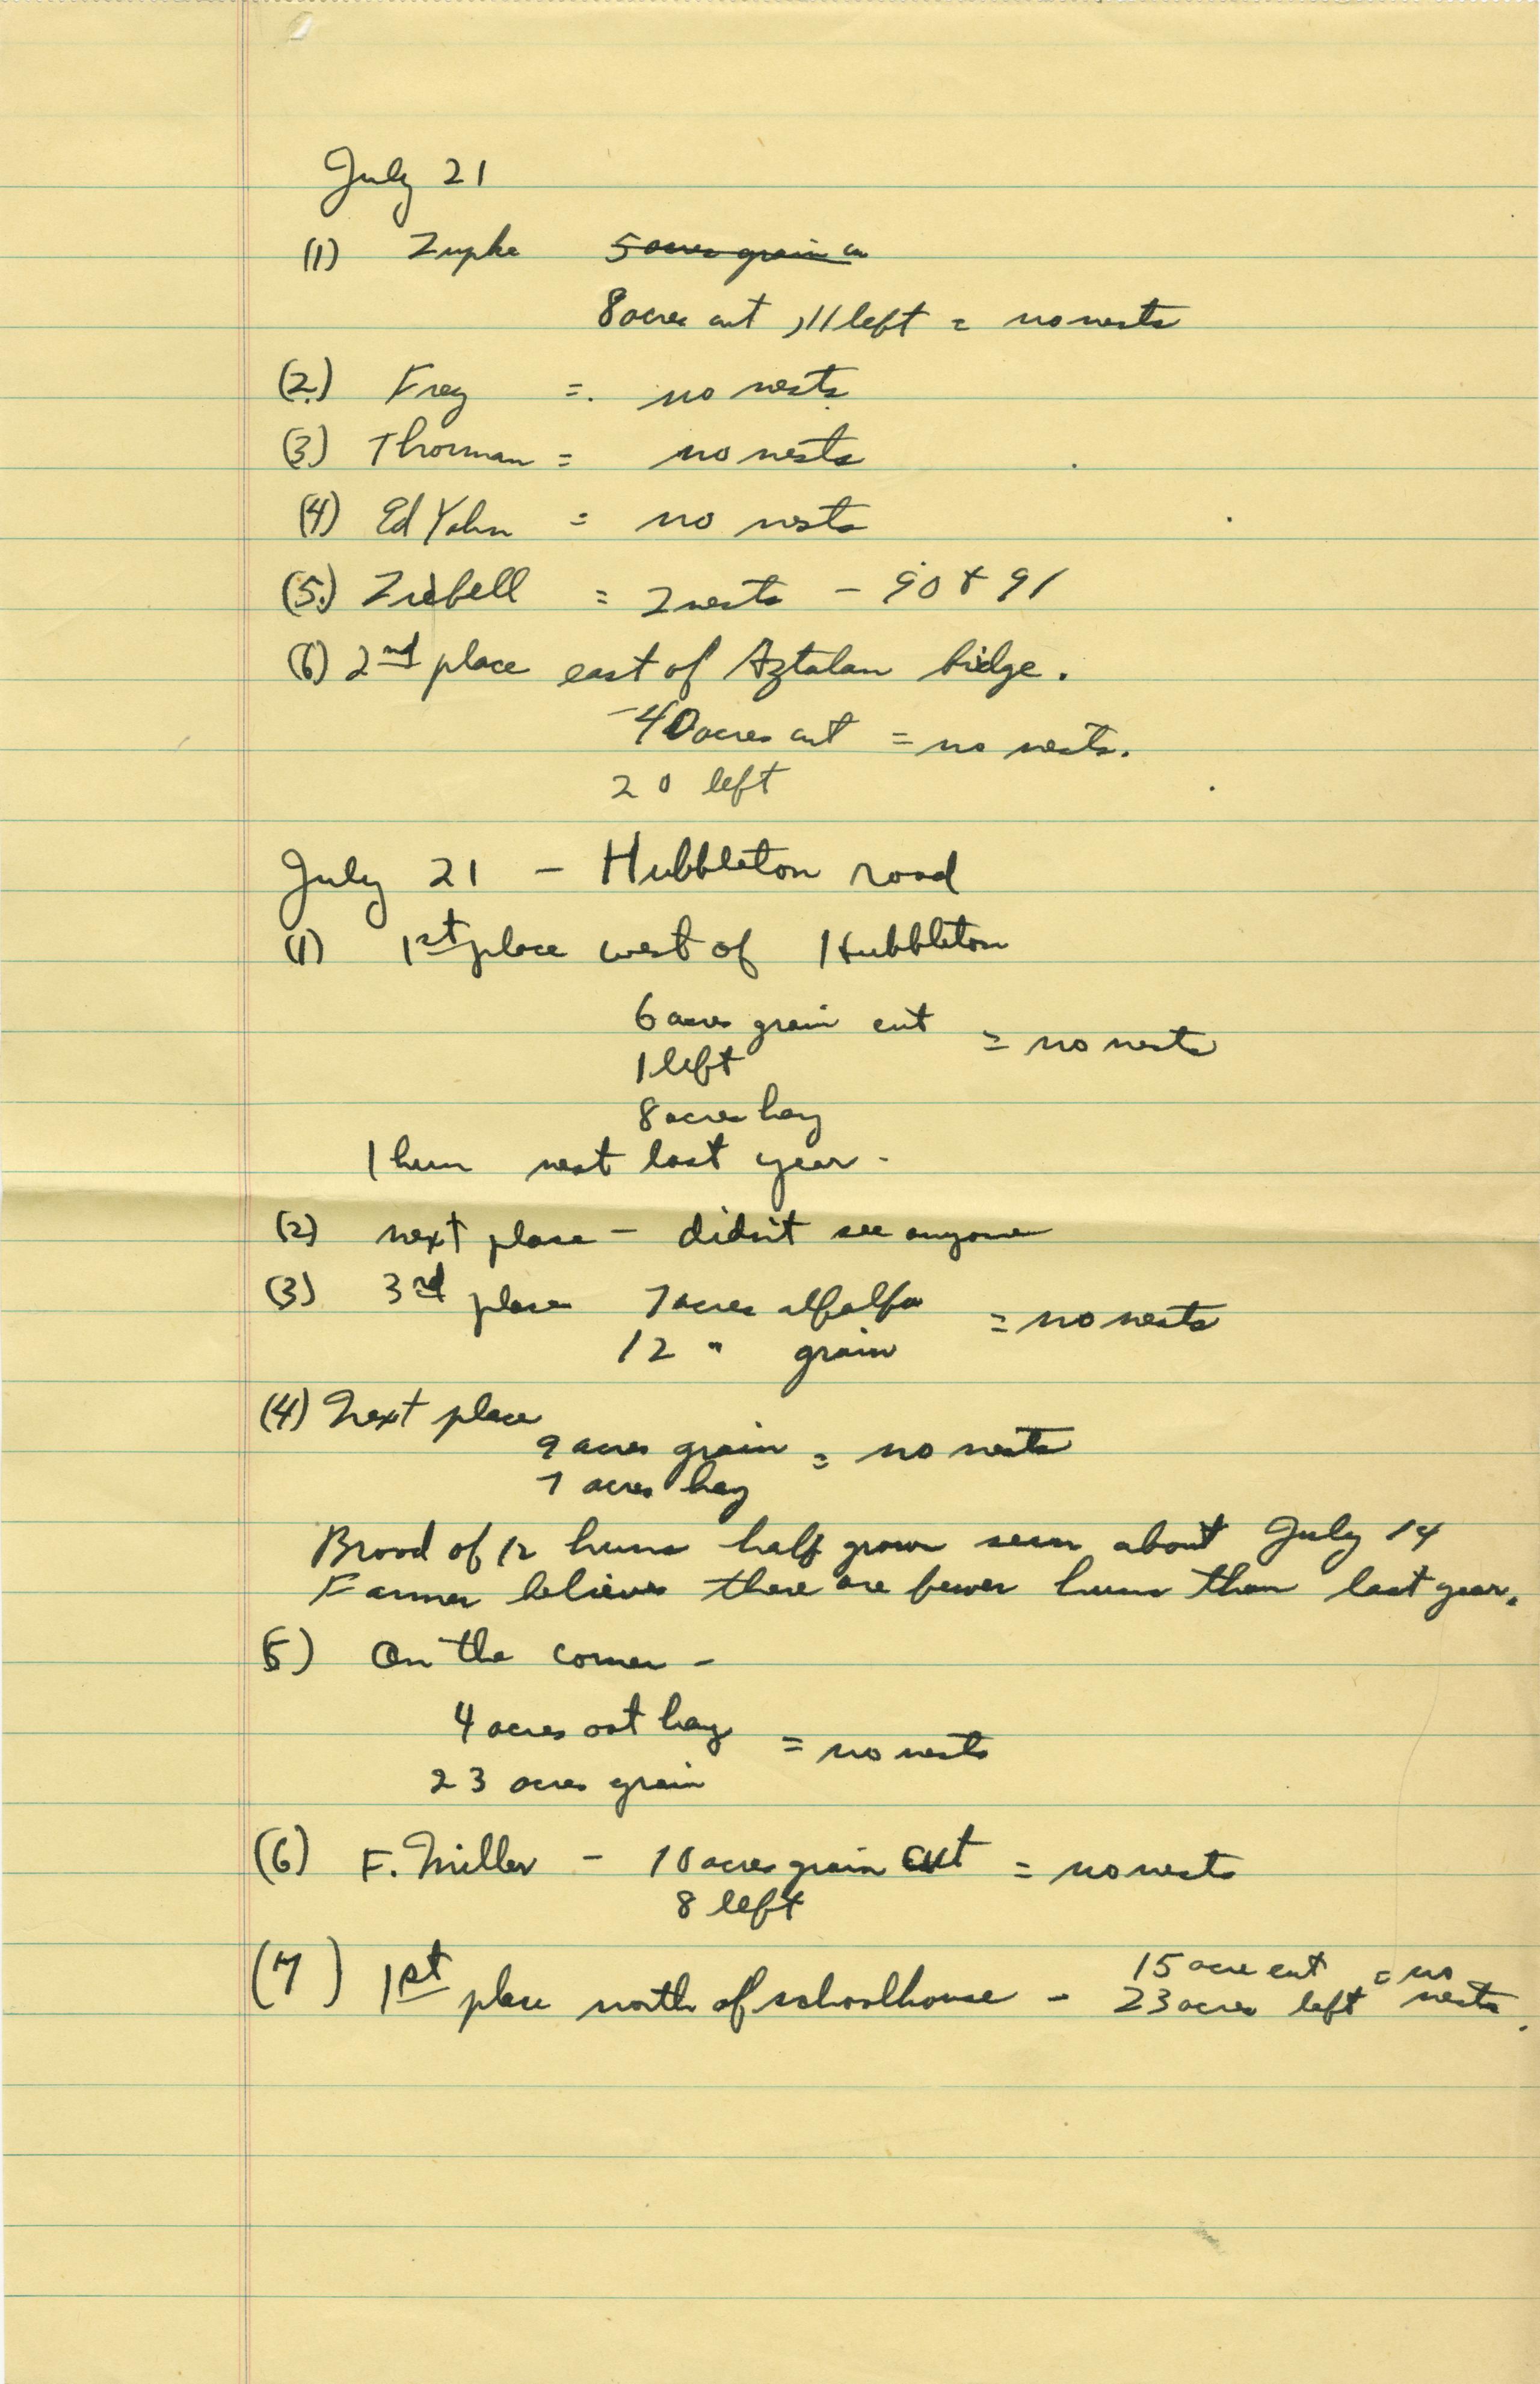 July 21
(1) Zupke 5 acres grain cu
8 acres cut, 11 left = no nests
(2.) Frey = no nests
(3.) Thorman = no nests
(4) Ed Yahn = no nests
(5.) Ziebell = 2 nests - 90 & 91
(6) 2nd place east of Aztalan bridge.
-40 acres cut = no nests.
20 left
July 21 - Hubbleton road
(1) 1st place west of Hubbleton
6 acres grain cut = no nests
1 left
8 acres hay
1 hun nest last year -
(2) next place - didn't see anyone
(3) 3rd place 7 acres alfalfa = no nests
12 " grain
(4) Next place
9 acres grain = no nests
7 acres hay
Brood of 12 huns half grown seen about July 14
Farmer believes there are fewer huns than last year.
5) On the corner -
4 acres oat hay = no nests
23 acres grain
(6) F. Miller - 10 acres grain cut = no nests
8 left
(7) 1st place north of schoolhouse - 15 acre cut = no
23 acres left nests.